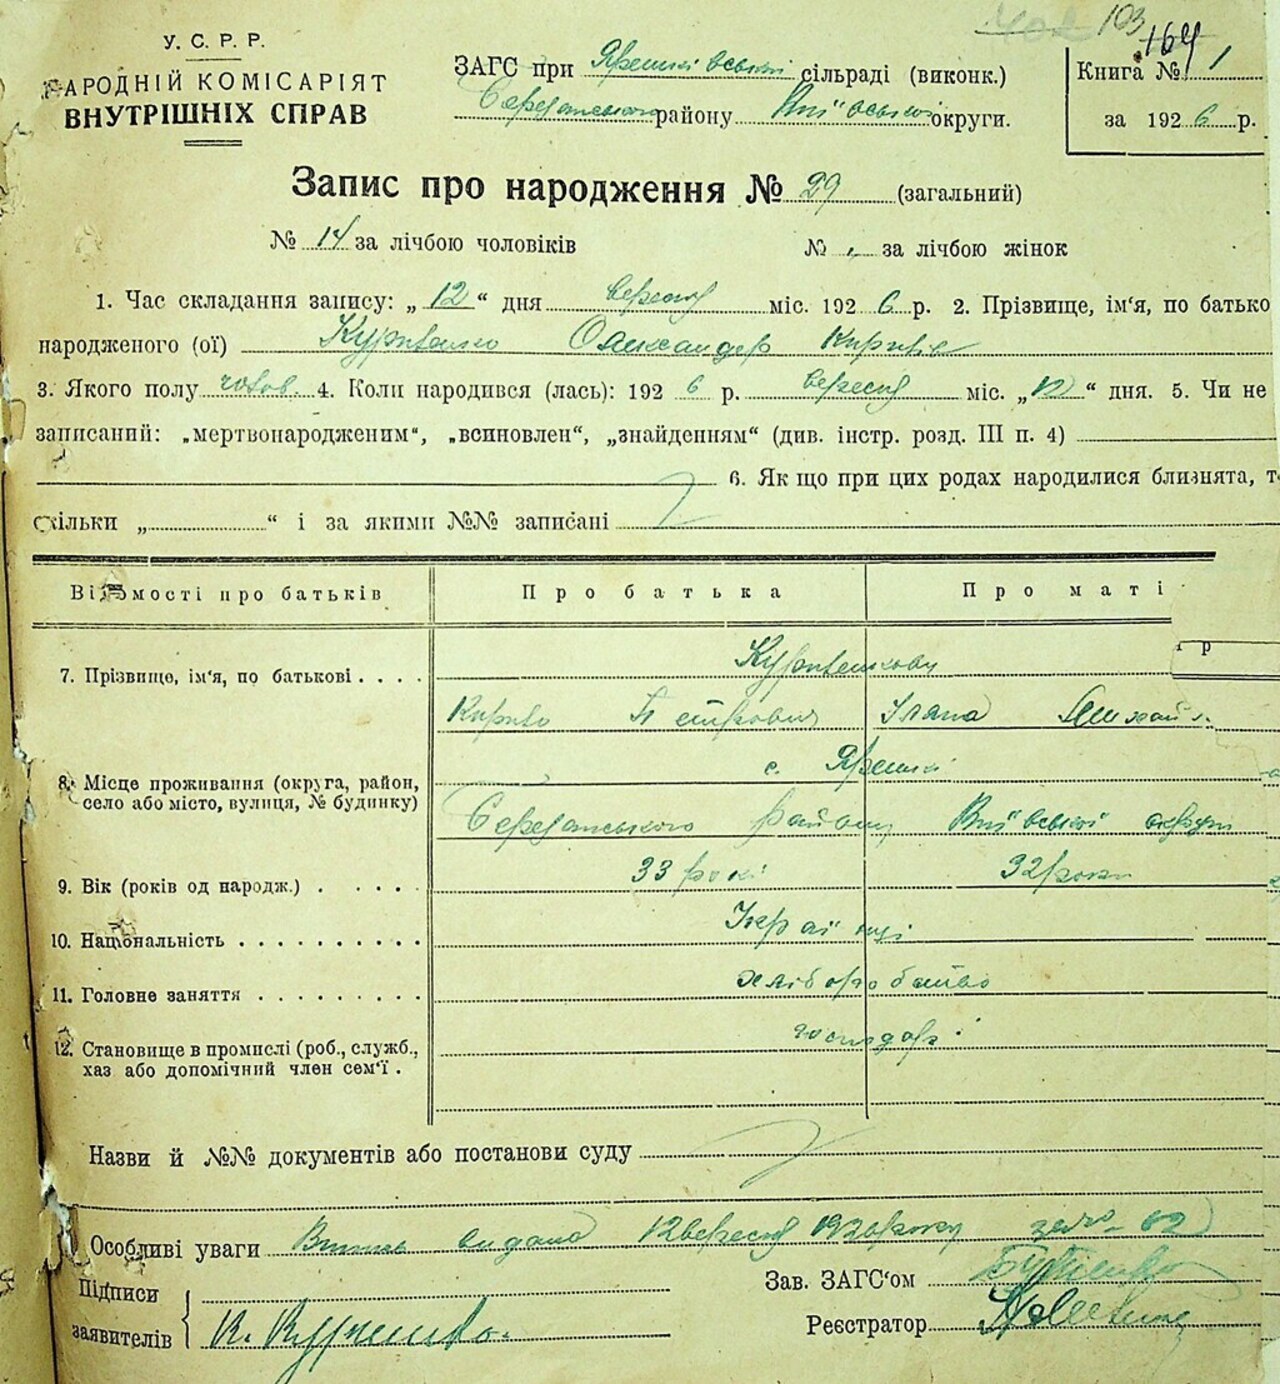 103
164
У. С. Р. Р.
НАРОДНІЙ КОМІСАРІЯТ
ВНУТРІШНІХ СПРАВ
ЗАГС при сільраді (виконк.)
району округи.
Книга № 1
за 1926 р.
Запис про народження № 29 (загальний)
№ 14 за лічбою чоловіків № за лічбою жінок
1. Час складання запису: „12“ дня вересня міс. 1926 р. 2. Прізвище, ім‘я, по батько
народженого (ої) Олександер
3. Якого полу чолов. 4. Коли народився (лась): 1926 р. вересня міс. „12“ дня. 5. Чи не
записаний: „мертвонародженим“, „всиновлен“, „знайденням“ (див. інстр. розд. III п. 4)
6. Як що при цих родах народилися близнята, т
скільки „ “ і за якими №№ записані
Відомості про батьків Про батька Про маті
7. Прізвище, ім‘я, по батькові . . . .
Кирило Петрович
с. Ярешки
8. Місце проживання (округа, район,
село або місто, вулиця, № будинку)
району округи
9. Вік (років од народж.) . . . . . 33 роки 32 роки
10. Національність . . . . . . . . . . Українці
11. Головне заняття . . . . . . . . . хліборобство
12. Становище в промислі (роб., служб.,
хаз або допомічний член сем‘ї . господарі
Назви й №№ документів або постанови суду
Особливі уваги видана 12 вересня 1926 року
Підписи
заявителів
Зав. ЗАГС‘ом
Реєстратор